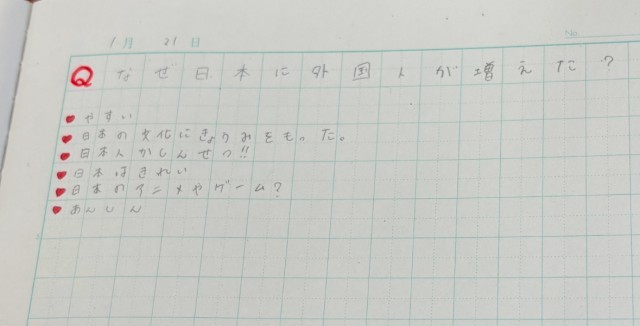 No.
1月 21日
Q なぜ日本に外国人が増えた?
♥やすい
♥日本の文化にきょうみをもった。
♥日本人がしんせつ!!
♥日本はきれい
♥日本のアニメやゲーム?
♥あんしん